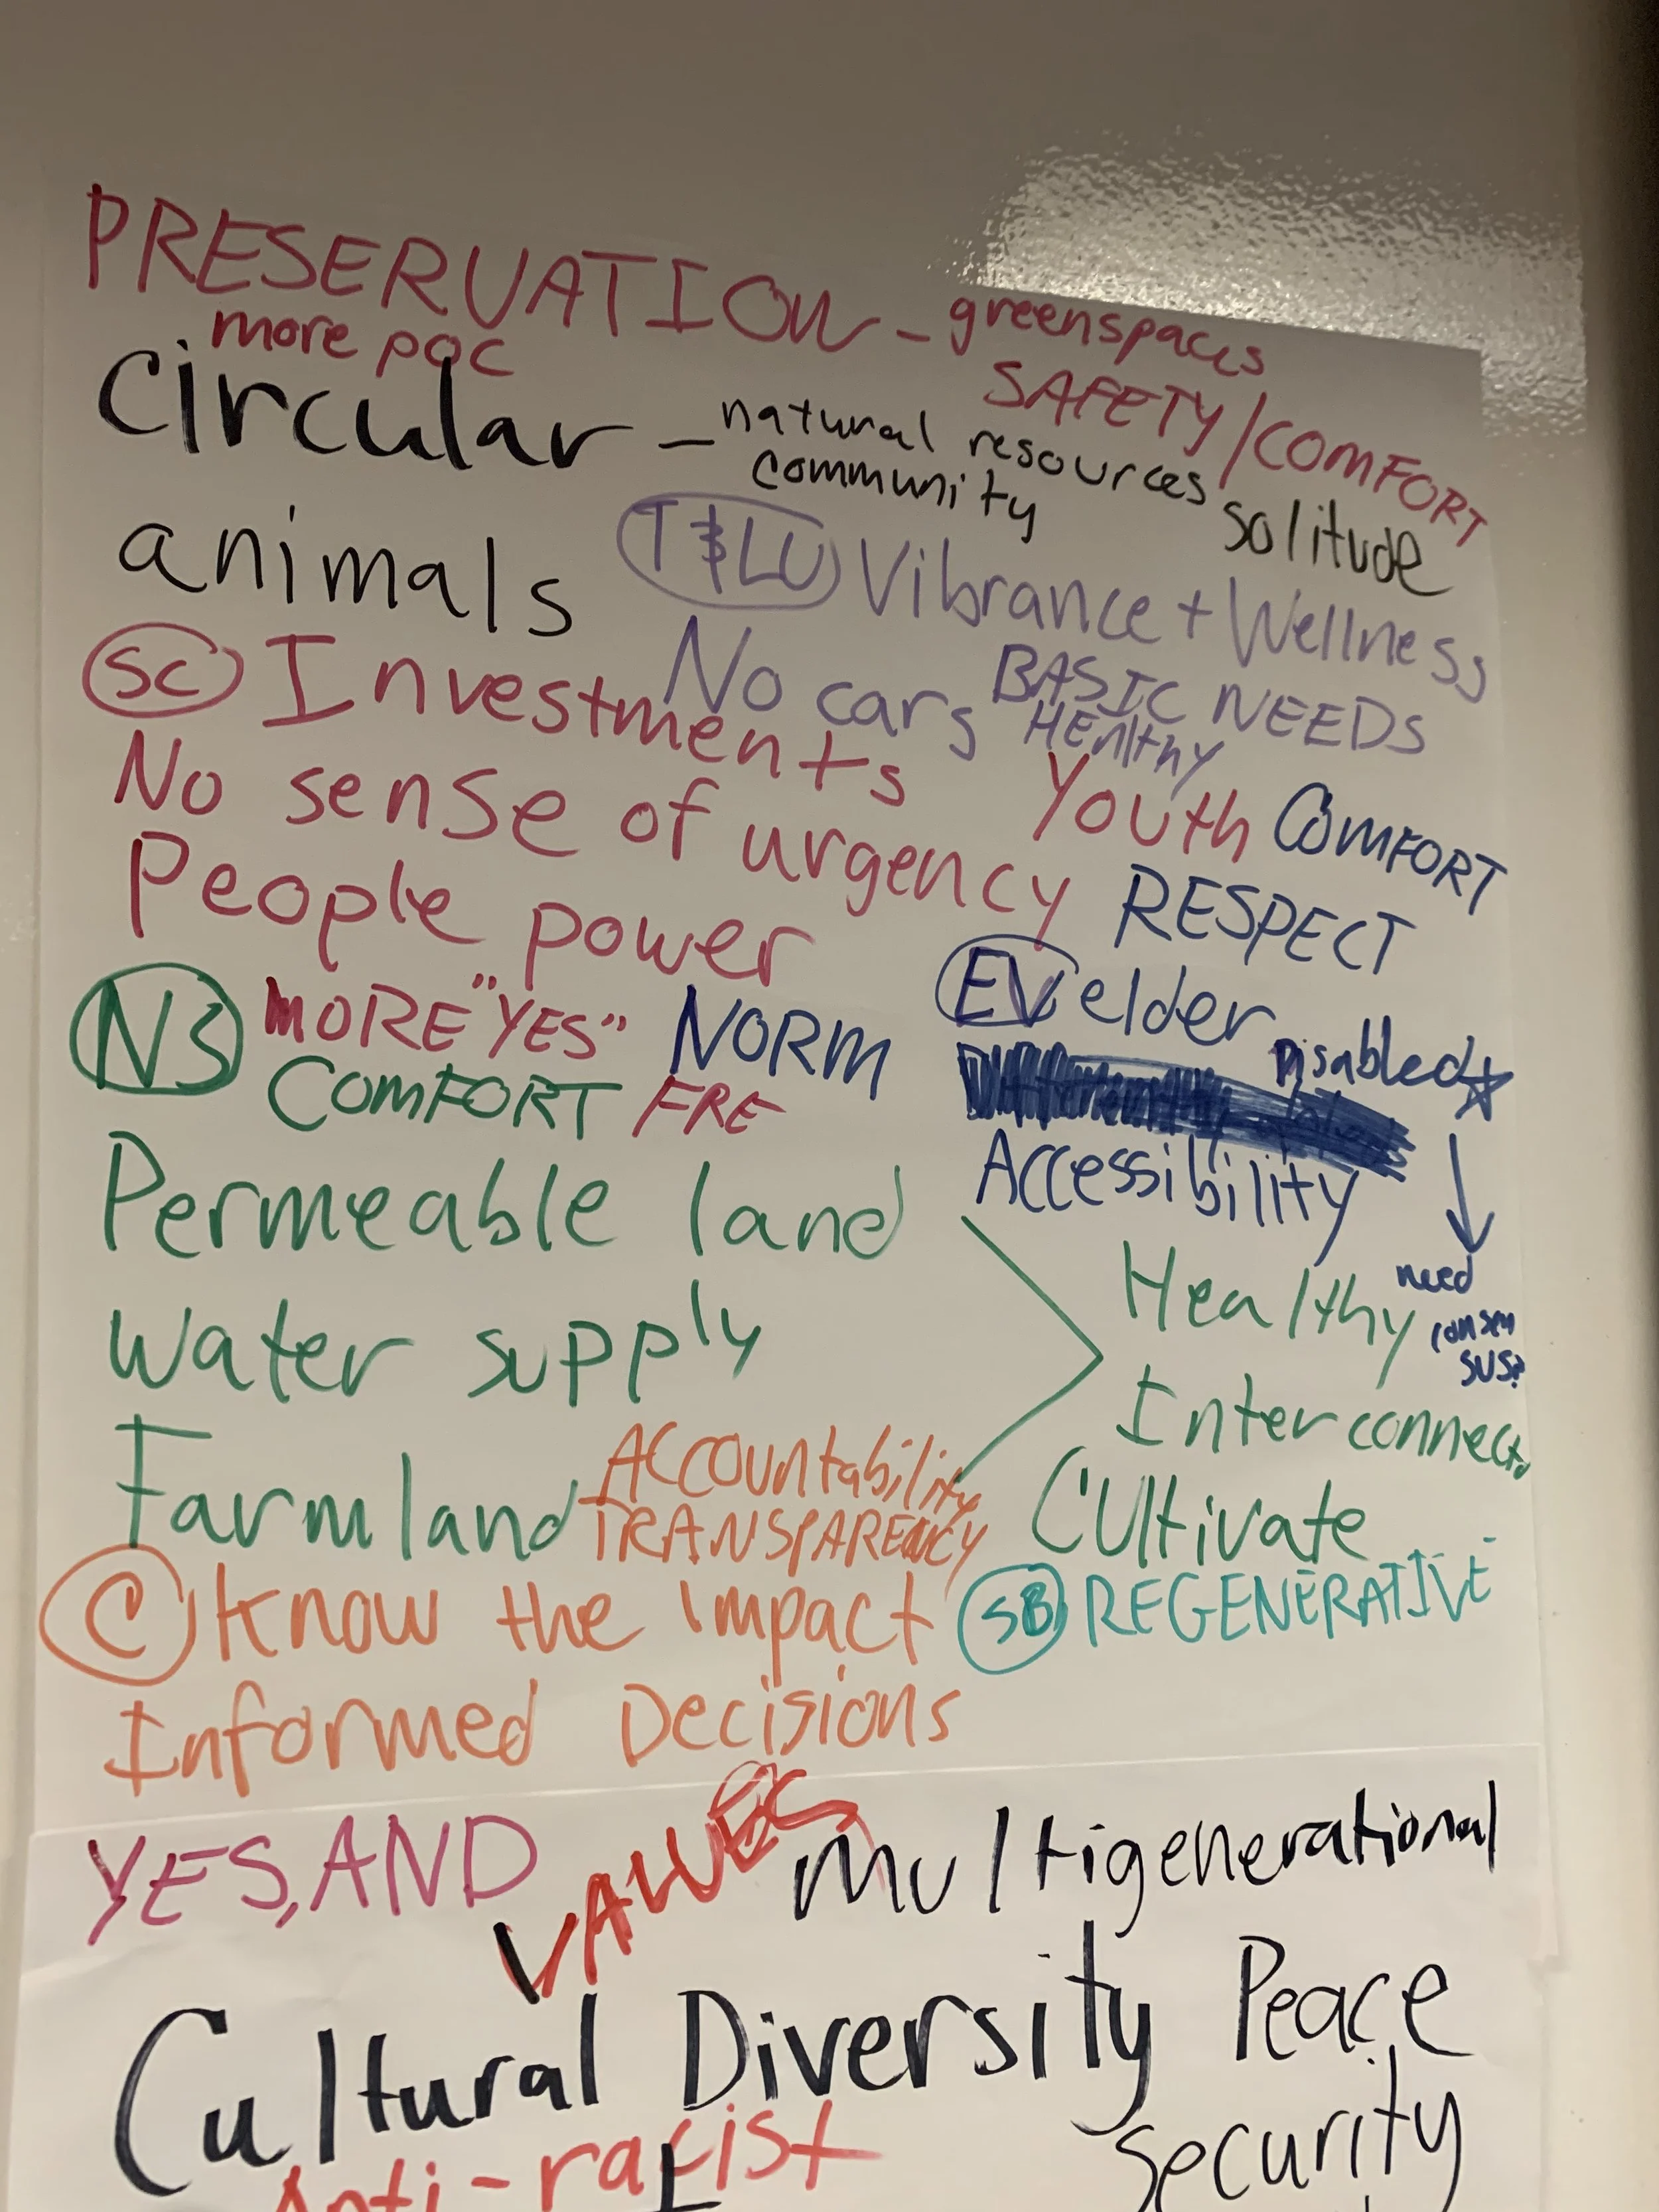 PRESERVATION - greenspaces
more POC
SAFETY/COMFORT
circular - natural resources
community
solitude
animals
T&LU Vibrance + Wellness
SC Investments
No cars
BASIC NEEDS
HEalthy
No sense of urgency
Youth COMFORT
People power
RESPECT
NS MORE "YES" NORM
EV elder
Disabled
COMFORT FRE
Accessibility
Permeable land
Healthy
need
consen
sus?
water supply
Interconnect
Farmland
ACCOUntability
TRANSPARENCY
Cultivate
C Know the impact
SB REGENERATIVE
Informed Decisions
YES, AND
VALUES
Multigenerational
Cultural Diversity
Peace
Security
Anti-racist